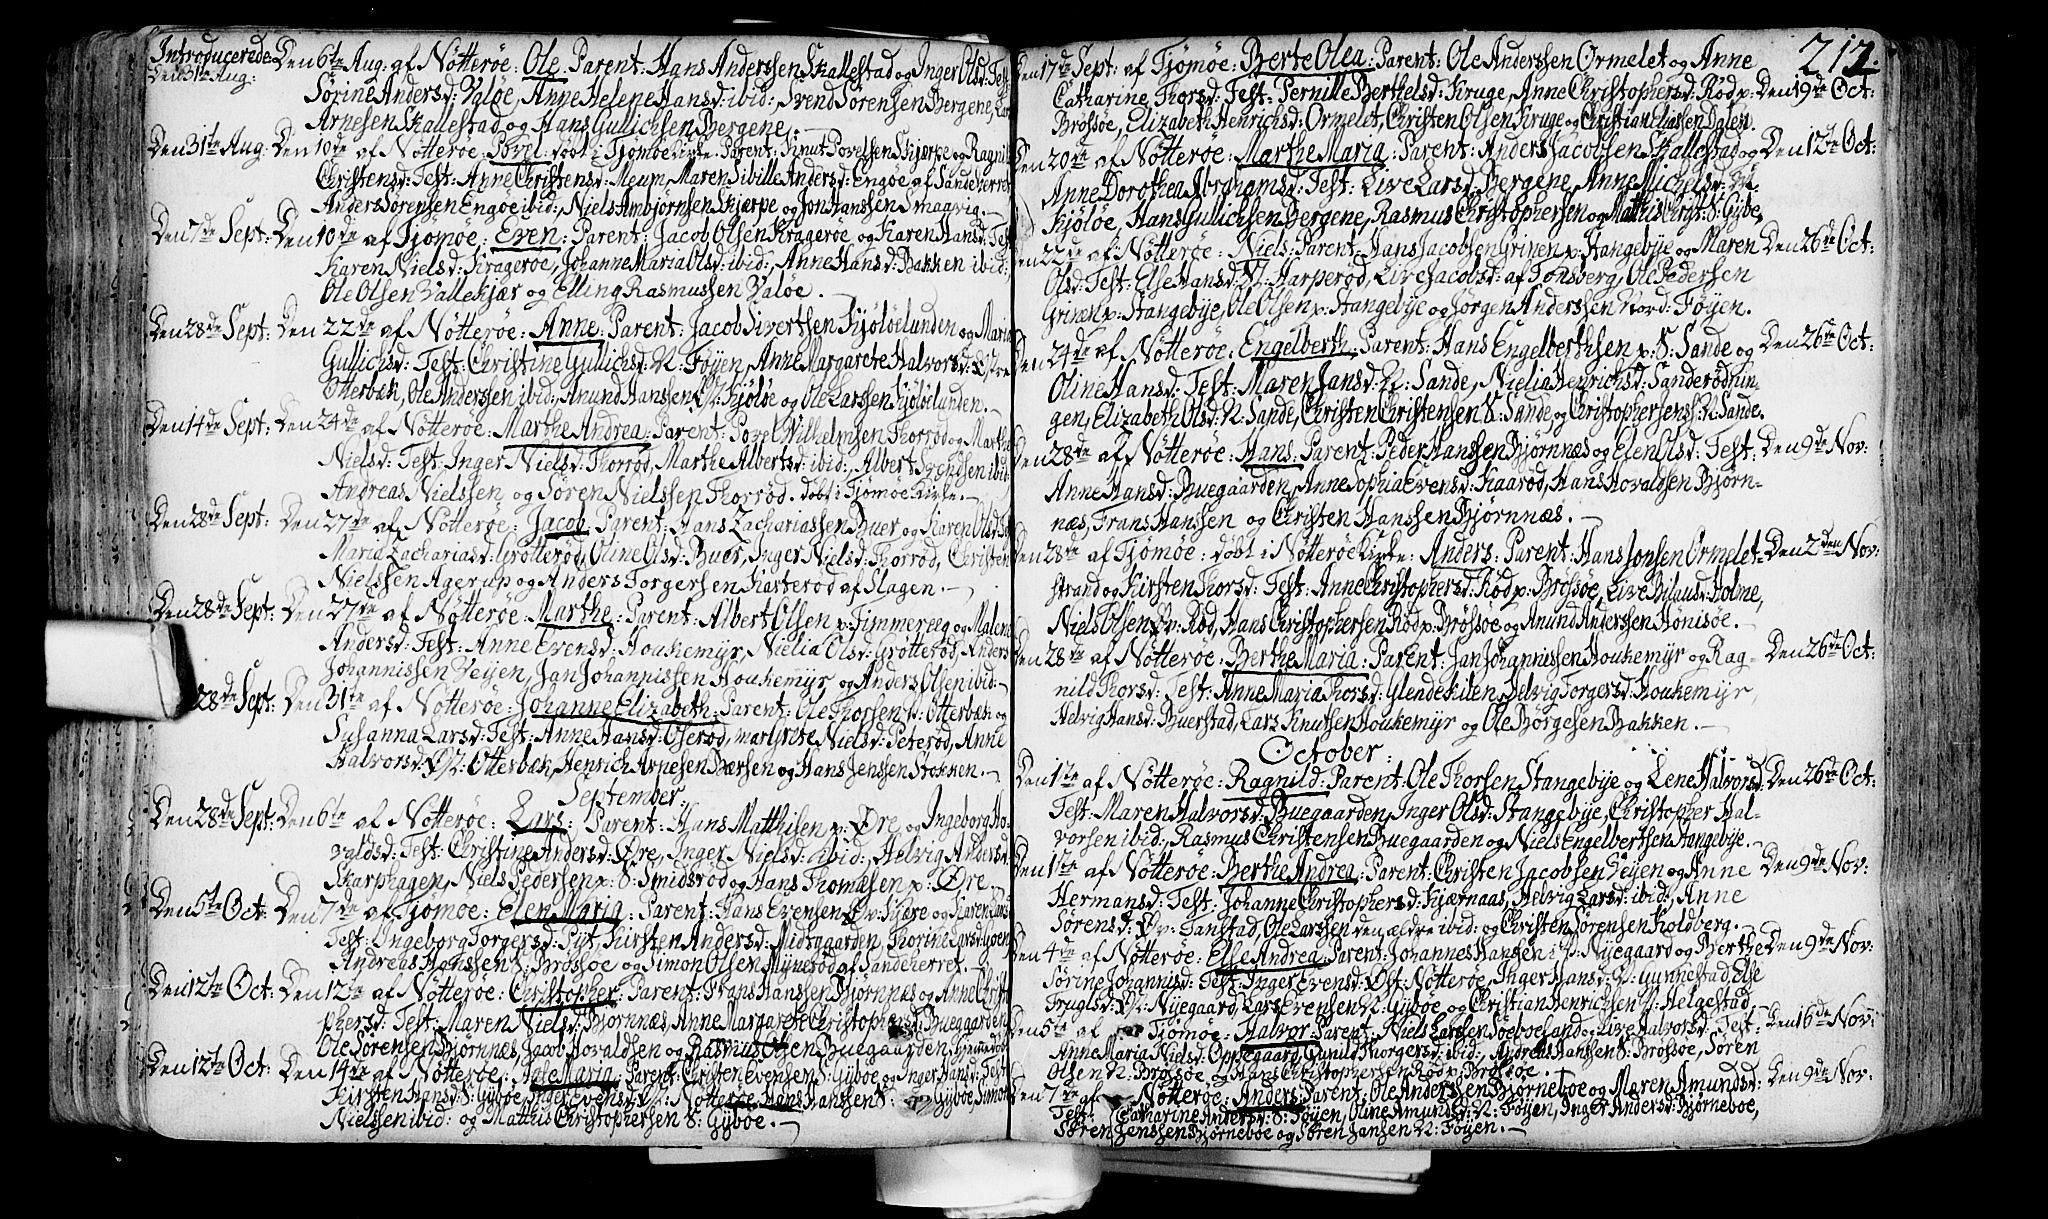 Introducerede Den 6te Aug: af Nötteröe: Ole. Parent: Hans Anderssen Skallestad og Inger Olsd: Test:
Den 31te Aug:
Sørine Andersd: Valöe, Anne Helene Hansd: ibid: Svend Sörensen Bergene, Lars
Arnesen Skallestad og Hans Gullichsen Bergene.
Den 31te Aug: Den 10de af Nötteröe: Povel döbt i Tjömöe Kirke. Parent: Knut Povelsen Skjerpe og Ragnil
Christensd: Test: Anne Christensd: Meum, Maren Sibille Andersd: Engöe af Sandeherret
Anders Sörensen Engöe ibid:, Niels Ambjörnsen Skjærpe og Jon Hanssen Smaavig.
Den 7de Sept: Den 10de af Tjömöe: Even: Parent: Jacob Olsen Kragerøe og Karen Hansd: Test:
Karen Nielsd: Kragerøe, Johanne Maria Olsd: ibid:, Anne Hansd: Bakken ibid:
Ole Olsen Vallekjær og Elling Rasmussen Valöe.
Den 28de Sept: Den 22de af Nötteröe: Anne: Parent: Jacob Sivertsen Kjölöelunden og Maria
Gullichsd: Test: Christine Gullichsd: N: Föyen, Anne Margarete Halvorsd: Østre
Otterbæk, Ole Anderssen ibid:, Anund Hanssen Kjölöe og Ole Larssen Kjölöelunden.
Den 14de Sept: Den 24de af Nötteröe: Marthe Andrea: Parent: Povel Wilhelmsen Thorröd og Marthe
Nielsd: Test: Inger Nielsd: Thorröd, Marthe Albertsd: ibid:, Albert Svendsen ibid:
Andreas Nielssen og Sören Nielssen Thorröd. döbt i Tjömöe Kirke.
Den 28de Sept: Den 27de af Nötteröe: Jacob: Parent: Hans Zachariassen Buer og Karen Olsd: Test:
Maria Zachariasd: Gröttteröd, Oline Olsd: Buer, Inger Nielsd: Thorröd, Christen
Nielssen Agerup og Anders Torgersen Karteröd af Slagen.
Den 28de Sept: Den 27de af Nötteröe: Marthe: Parent: Albert Olsen p: Timmereeg og Malene
Andersd: Test: Anne Evensd: Houkemyr, Nielia Olsd: Grötteröd, Anders
Johannissen Veijen, Jan Johannissen Houkemyr og Anders Olsen ibid:
28de Sept: Den 31te af Nötteröe: Johanne Elizabeth: Parent: Ole Thorsen V: Otterbæk og
Susanna Larsd: Test: Anne Hansd: Oseröd, Margrete Nielsd: Peteröd, Anne
Halvorsd: Otterbæk, Henrich Arnesen Bærsen og Hans Jenssen Stokken.
September:
Den 28de Sept: Den 6te af Nötteröe: Lars: Parent: Hans Matthisen p: Øre og Ingeborg Ho-
valdsd: Test: Christine Andersd: Øre, Inger Nielsd: ibid:, Helvig Andersd:
Skarphagen, Niels Pedersen p: S: Smidsröd og Hans Thomæsen p: Øre.
Den 5te Oct: Den 7de af Tjömöe: Elen Maria: Parent: Hans Evensen Kjære og Karen Larsd:
Test: Ingeborg Torgersd: Pijt, Kirsten Andersd: Midtgaarden, Thorine Larsd: Goen
Andreas Hanssen S: Brössöe og Simon Olsen Myneröd af Sandeherret.
Den 12te Oct: Den 12te af Nötteröe: Christopher: Parent: Frans Hanssen Björnnæs og Anne Christo-
phersd: Test: Maren Nielsd: Björnnæs, Anne Margarete Christophersd: Buegaarden
Ole Sörensen Björnnæs, Jacob Hovaldsen og Rasmus Olsen Buegaarden.
Den 12te Oct: Den 14de af Nötteröe: Anne Maria: Parent: Christen Evensen S: Gyböe og Inger Hansd: Test:
Kirsten Hansd: S: Gyböe, Inger Evensd: Nötteröe, Hans Hanssen S: Gyböe, Simon
Nielssen ibid: og Matthis Christophersen S: Gyböe.
212.
Den 17de Sept: af Tjömöe: Berte Olea: Parent: Ole Anderssen Ormelet og Anne
Catharine Thorsd: Test: Pernille Berthelsd: Kruge, Anne Christophersd: Röd p: Den 19de Oct:
Brössöe, Elizabeth Henrichsd: Ormelet, Christen Olsen Kruge og Christian Eliassen Dalen.
Den 20de af Nötteröe: Marthe Maria: Parent: Anders Jacobsen Skallestad og Den 12te Oct:
Anne Dorothea Abrahamsd: Test: Live Larsd: Bergene, Anne Michelsd:
Kjölöe, Hans Gullichsen Bergene, Rasmus Christophersen og Matthis Christ: S: Gyböe,
Den 22de af Nötteröe: Niels: Parent: Hans Jacobsen Griven p: Stangebye og Maren Den 26de Oct:
Olsd: Test: Else Hansd: Harperöd, Live Jacobsd: af Tönsberg, Ole Pedersen
Griven p: Stangebye, Ole Olsen p: Stangebye og Jörgen Anderssen Nord: Föyen.
Den 24de af Nötteröe: Engelberth: Parent: Hans Engelberthsen p: S: Sande og Den 26de Oct:
Oline Hansd: Test: Maren Jansd: N: Sande, Nielia Henrichsd: Sanderödnin-
gen, Elizabeth Olsd: N: Sande, Christen Christensen S: Sande og Christophersen N: Sande.
Den 28de af Nötteröe: Hans: Parent: Peder Hanssen Björnnæs og Elen Olsd: Test: Den 9de Nov:
Anne Hansd: Buegaarden, Anne Sophia Evensd: Kaaröd, Hans Hovaldsen Björn-
næs, Frans Hanssen og Christen Hanssen Björnnæs.
Den 28de af Tjömöe: döbt i Nötteröe Kirke: Anders: Parent: Hans Jonsen Ormelet- Den 2den Nov:
strand og Kirsten Thorsd: Test: Anne Christophersd: Röd p: Brössöe, Live Bilausd: Holme,
Niels Olsen Röd, Hans Christophersen Röd p: Brössöe og Anund Anderssen Honisöe.
Den 28de af Nötteröe: Berthe Maria: Parent: Jan Johannissen Houkemyr og Rag- Den 26de Oct:
nild Thorsd: Test: Anne Maria Thorsd: Glendekilen, Helvig Torgersd: Houkemyr,
Helvig Hansd: Buerstad, Lars Knutsen Houkemyr og Ole Börgesen Bakken.
October:
Den 1te af Nötteröe: Ragnild: Parent: Ole Thorsen Stangebye og Lene Halvorsd: Den 26de Oct:
Test: Maren Halvorsd: Buegaarden, Inger Olsd: Stangebye, Christopher Hal-
vorsen ibid:, Rasmus Christensen Buegaarden og Niels Engelbertsen Stangebye.
Den 1te af Nötteröe: Berthe Andrea: Parent: Christen Jacobsen Veijen og Anne Den 9de Nov:
Hermansd: Test: Johanne Christophersd: Kjærnaas, Helvig Larsd: ibid:, Anne
Sörensd: Tanstad, Ole Larssen den ældre ibid: og Christen Sörensen Holdberg.
Den 4de af Nötteröe: Else Andrea: Parent: Johannes Hansen Nijegaard og Berthe Den 9de Nov:
Sörine Johannisd: Test: Inger Evensd: Øst: Nötteröe, Inger Hansd: Gunnestad, Else
Truglsd: Nijegaard, Lars Evensen N: Gyböe og Christian Henrichsen Helgestad.
Den 5te af Tjömöe: Halvor: Parent: Niels Larssen Söeboeland og Live Halvorsd: Test: Den 16de Nov:
Anne Maria Nielsd: Oppegaard, Gunild Thorgersd: ibid:, Andreas Hanssen S: Brössöe, Sören
Olsen N: Brössöe og Hans Christophersen Röd p: Brössöe.
Den 7de af Nötteröe: Anders: Parent: Ole Anderssen Björneboe og Maren Amundsd: Den 9de Nov:
Test: Catharine Andersd: S: Föyen, Oline Amundsd: N: Föyen, Inger Andersd: Björneboe,
Sören Jenssen Björneboe og Sören Jansen N: Föyen.